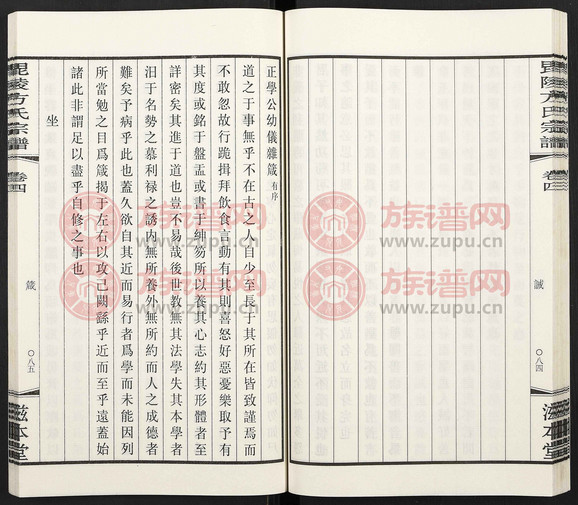 毘陵方氏宗譜
卷四
誡
〇八四
滋本堂
正學公幼儀雜箴有序
道之于事無乎不在古之人自少至長于其所在皆致謹焉而
不敢忽故行跪揖拜飲食言動有其則喜怒好惡憂樂取予有
其度或銘于盤盂或書于紳笏所以養其心志約其形體者至
詳密矣其進于道也豈不易哉後世教無其法學失其本學者
汨于名勢之慕利祿之誘內無所養外無所約而人之成德者
難矣予病乎此也蓋久欲自其近而易行者爲學而未能因列
所當勉之目爲箴揭于左右以攻己闕繇乎近而至乎遠蓋始
諸此非謂足以盡乎自修之事也
坐
毘陵方氏宗譜
卷四
箴
〇八五
滋本堂
族谱网
www.zupu.cn
族谱网
www.zupu.cn
族谱网
www.zupu.cn
族谱网
www.zupu.cn